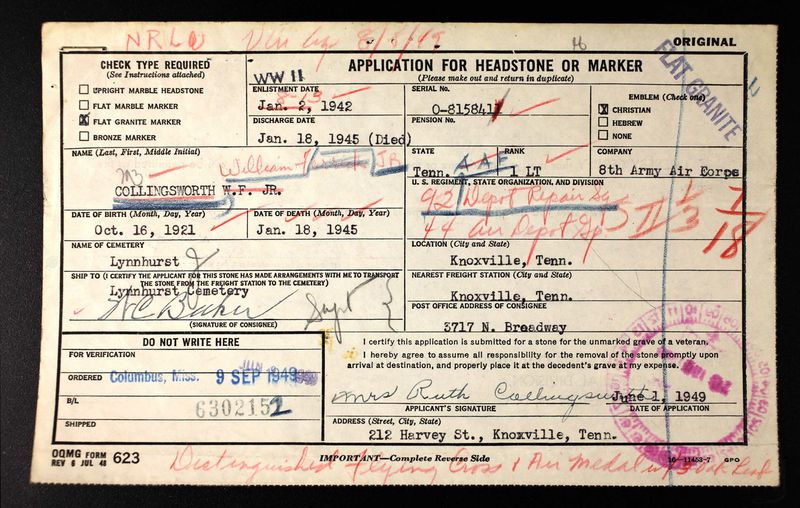 NRLD Ver 8/5/49
ORIGINAL
CHECK TYPE REQUIRED
(See Instructions attached)
UPRIGHT MARBLE HEADSTONE
FLAT MARBLE MARKER
X FLAT GRANITE MARKER
BRONZE MARKER
WW II
APPLICATION FOR HEADSTONE OR MARKER
(Please make out and return in duplicate)
ENLISTMENT DATE
8-13
Jan. 2, 1942
DISCHARGE DATE
Jan. 18, 1945 (Died)
SERIAL No.
O-815841
PENSION No.
EMBLEM (Check one)
X CHRISTIAN
HEBREW
NONE
FLAT GRANITE
NAME (Last, First, Middle Initial)
William JR
COLLINGSWORTH W.F. JR.
STATE
Tenn.
AAF
RANK
1 LT
COMPANY
8th Army Air Corps
U. S. REGIMENT, STATE ORGANIZATION, AND DIVISION
92 Depot Repair Sq
44 Air Depot Gp
II 1/3 7/18
DATE OF BIRTH (Month, Day, Year)
Oct. 16, 1921
DATE OF DEATH (Month, Day, Year)
Jan. 18, 1945
NAME OF CEMETERY
Lynnhurst
LOCATION (City and State)
Knoxville, Tenn.
SHIP TO (I CERTIFY THE APPLICANT FOR THIS STONE HAS MADE ARRANGEMENTS WITH ME TO TRANSPORT
THE STONE FROM THE FREIGHT STATION TO THE CEMETERY)
Lynnhurst Cemetery
Supt
(SIGNATURE OF CONSIGNEE)
NEAREST FREIGHT STATION (City and State)
Knoxville, Tenn.
POST OFFICE ADDRESS OF CONSIGNEE
3717 N. Broadway
DO NOT WRITE HERE
FOR VERIFICATION
ORDERED Columbus, Miss. 9 SEP 1949
B/L
6302152
SHIPPED
I certify this application is submitted for a stone for the unmarked grave of a veteran.
I hereby agree to assume all responsibility for the removal of the stone promptly upon
arrival at destination, and properly place it at the decedent's grave at my expense.
Mrs Ruth Collingsworth June 1, 1949
APPLICANT'S SIGNATURE DATE OF APPLICATION
ADDRESS (Street, City, State)
212 Harvey St., Knoxville, Tenn.
OQMG FORM
REV 6 JUL 48 623
IMPORTANT—Complete Reverse Side
16-11453-7 GPO
Distinguished Flying Cross & Air Medal w/3 Oak Leaf